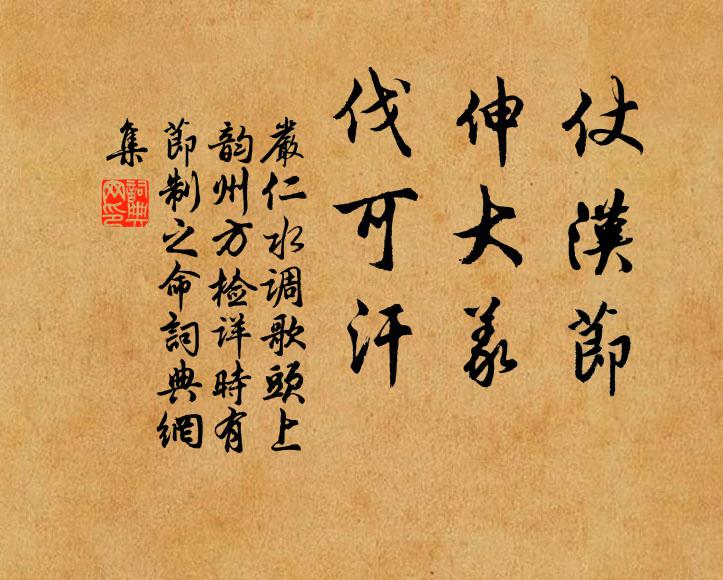 仗漢節
伸大義
伐可汗
嚴仁水调歌頭上
韵州方检详時有
節制之命詞典網
集
詞典網印